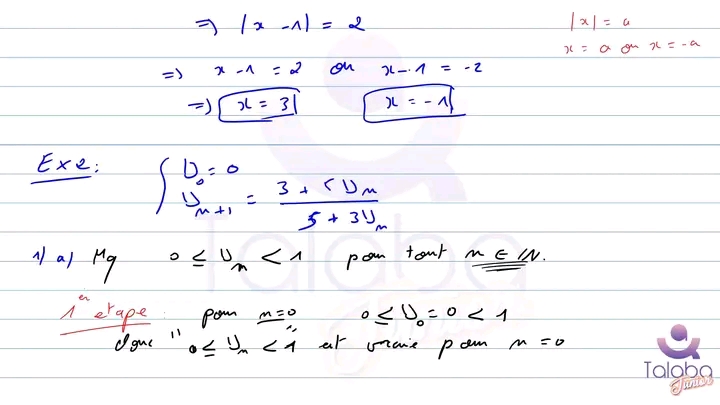 => |x - 1| = 2
|x| = a
x = a ou x = -a
=> x - 1 = 2 ou x - 1 = -2
=> x = 3 x = -1
Exe:
U₀ = 0
Uₙ₊₁ = (3 + 5Uₙ) / (5 + 3Uₙ)
1) a) Mq 0 ≤ Uₙ < 1 pour tout n ∈ IN.
1er etape : pour n=0 0 ≤ U₀ = 0 < 1
donc "0 ≤ Uₙ < 1" est vraie pour n = 0
Talaba
Talaba
Junior